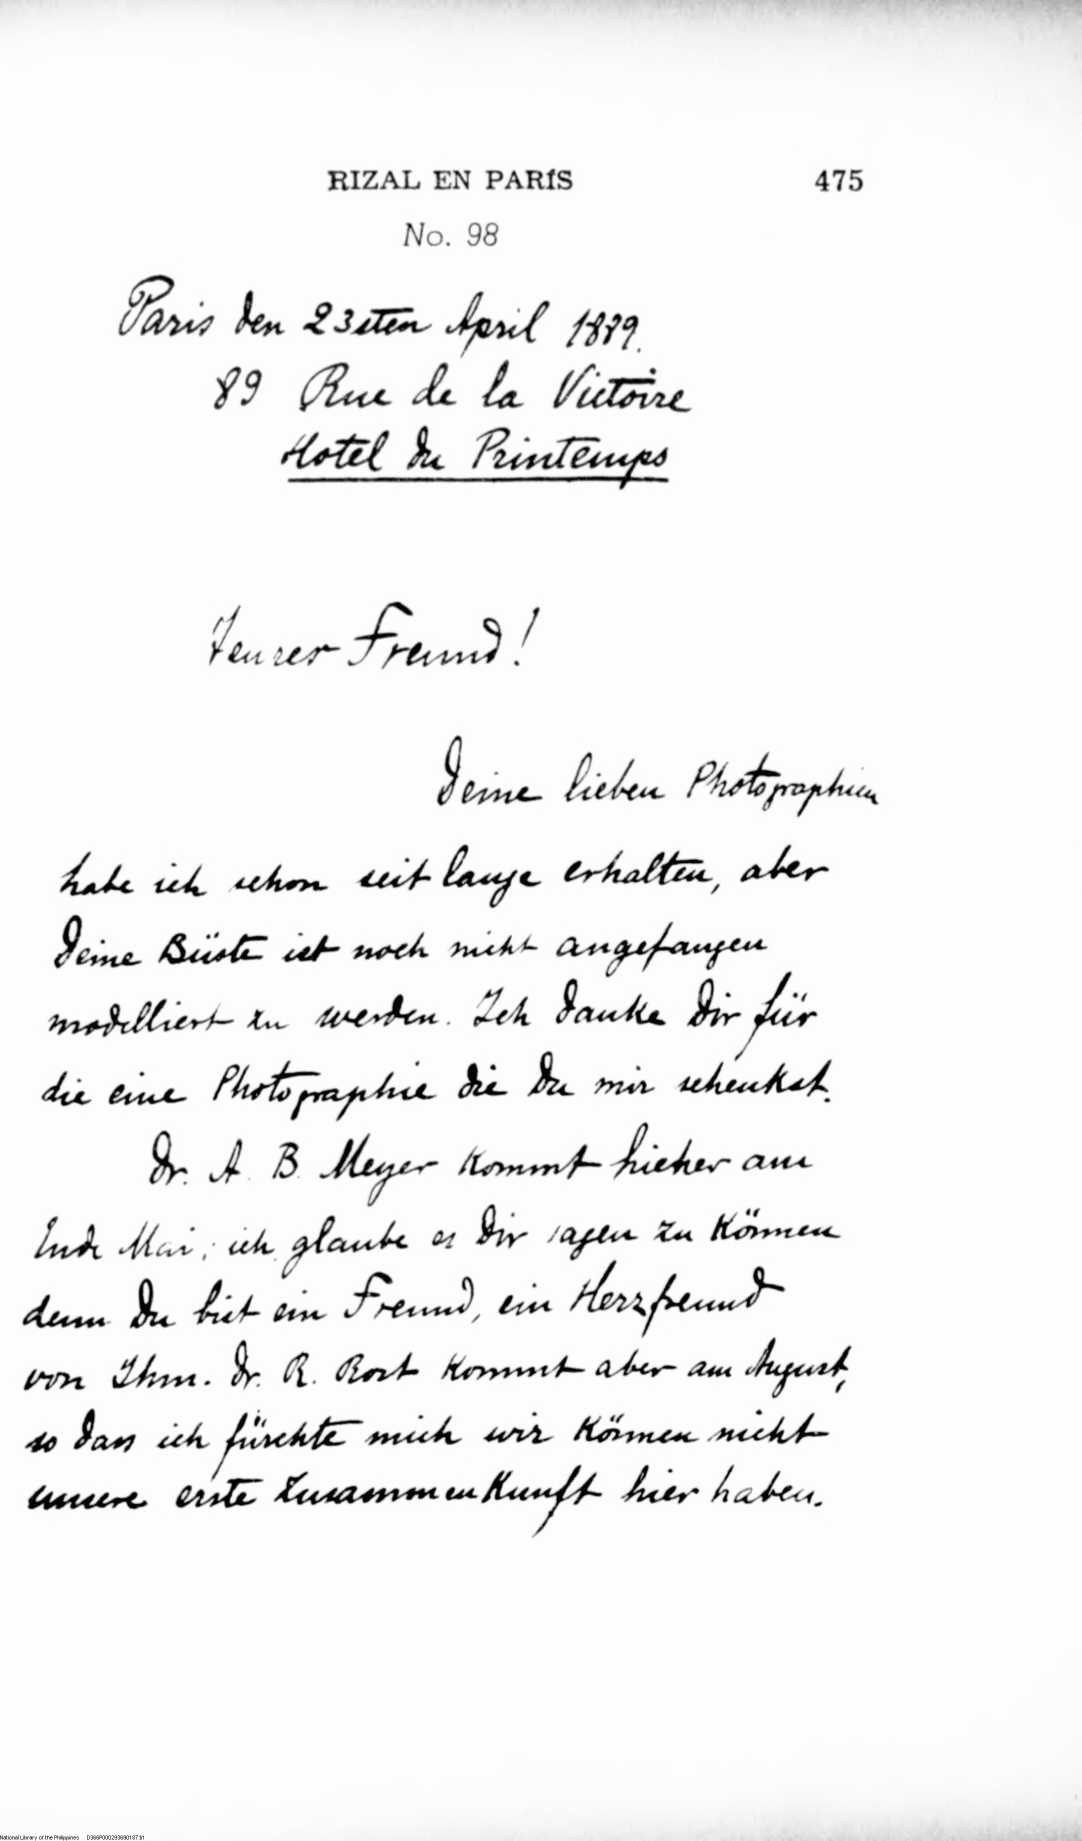 RIZAL EN PARÍS 475
No. 98
Paris den 23sten April 1889.
89 Rue de la Victoire
Hotel du Printemps
Teurer Freund!
Deine lieben Photographien
habe ich schon seit lange erhalten, aber
Deine Büste ist noch nicht angefangen
modelliert zu werden. Ich danke Dir für
die eine Photographie die Du mir schenkst.
Dr. A. B. Meyer kommt hieher am
Ende Mai; ich glaube es Dir sagen zu können
denn Du bist ein Freund, ein Herzfreund
von Ihm. Dr. R. Rost kommt aber am August,
so dass ich fürchte mich wir können nicht
unsere erste Zusammenkunft hier haben.
National Library of the Philippines